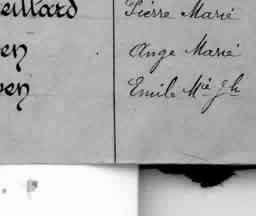 eillard Pierre Marie
en Ange Marie
en Emile Mie Jh